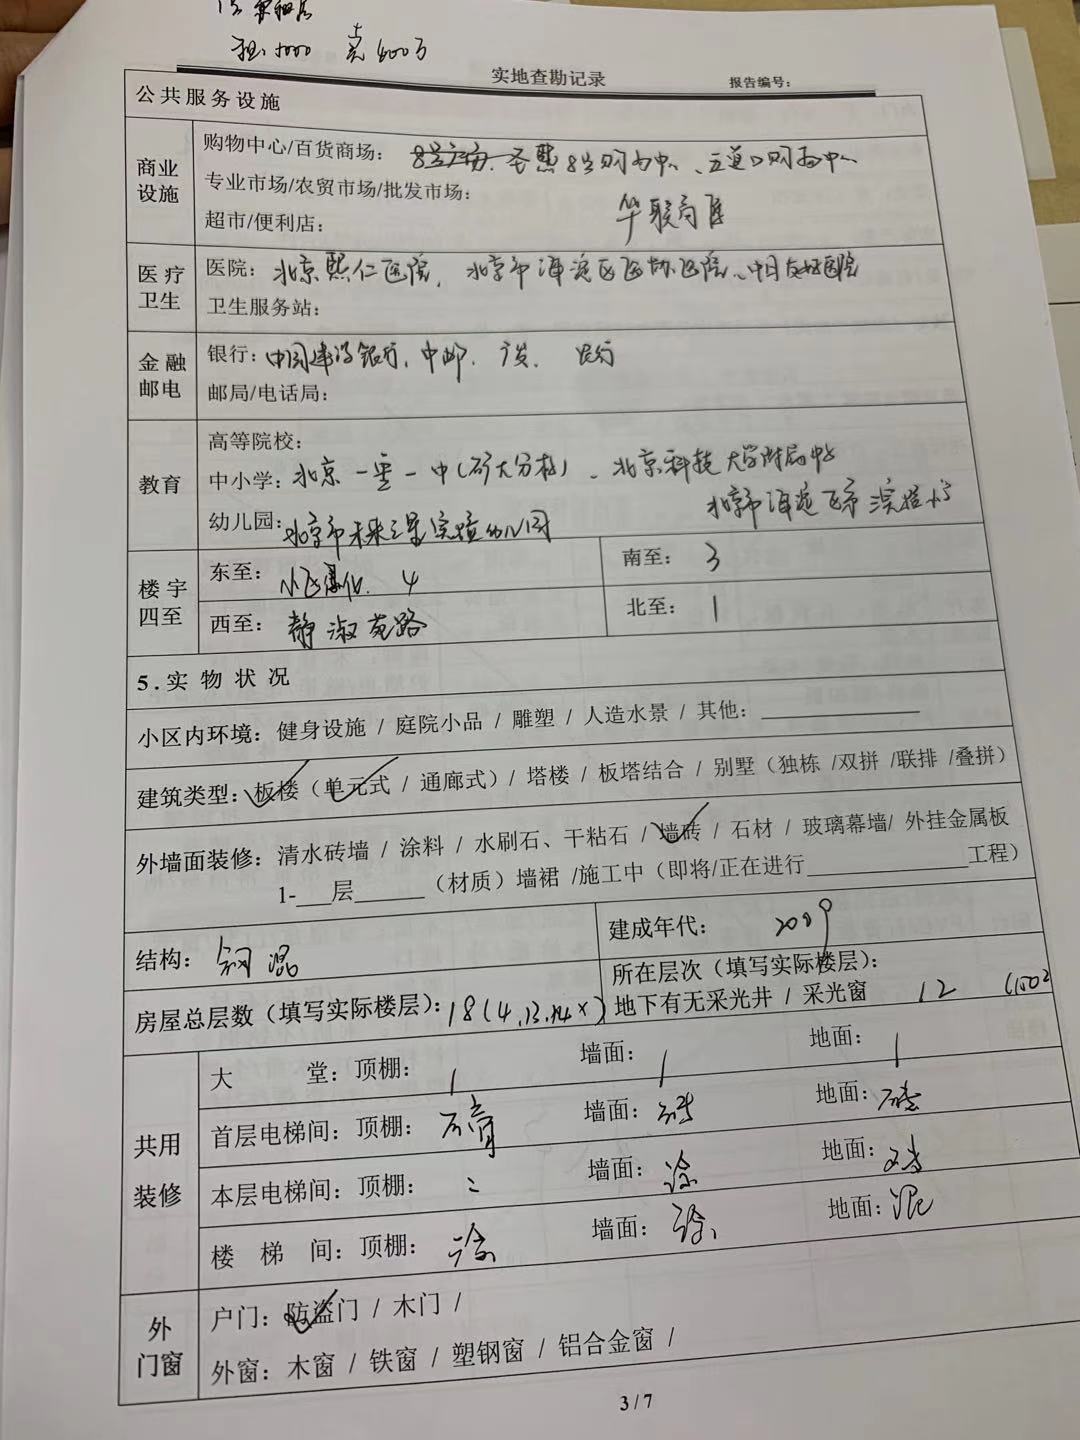 租:5000 卖800万
实地查勘记录 报告编号:
公共服务设施
商业设施
购物中心/百货商场: 圣熙8号购物中心、五道口购物中心
专业市场/农贸市场/批发市场:
超市/便利店: 华联
医疗卫生
医院: 北京熙仁医院, 北京市海淀区医院、中日友好医院
卫生服务站:
金融邮电
银行: 中国建设银行, 中邮. 广发.
邮局/电话局:
教育
高等院校:
中小学: 北京一零一中(矿大分校)、北京科技大学附属中学
北京市海淀区实验小学
幼儿园: 北京市未来之星实验幼儿园
楼宇四至
东至: 4 南至: 3
西至: 静淑苑路 北至: 1
5.实物状况
小区内环境: 健身设施 / 庭院小品 / 雕塑 / 人造水景 / 其他:
建筑类型: 板楼(单元式 / 通廊式)/ 塔楼 / 板塔结合 / 别墅(独栋 /双拼 /联排 /叠拼)
外墙面装修: 清水砖墙 / 涂料 / 水刷石、干粘石 / 墙砖 / 石材 / 玻璃幕墙/ 外挂金属板
1-___层______(材质)墙裙 /施工中(即将/正在进行______________工程)
结构: 钢混 建成年代: 2009
房屋总层数(填写实际楼层): 18(4.13.14×) 所在层次(填写实际楼层):
地下有无采光井 / 采光窗 12 (1502
共用装修
大堂:顶棚: / 墙面: / 地面: /
首层电梯间:顶棚: 石膏 墙面: 砖 地面: 砖
本层电梯间:顶棚: 墙面: 涂 地面: 砖
楼梯间:顶棚: 涂 墙面: 涂 地面: 混
外门窗
户门: 防盗门 / 木门 /
外窗: 木窗 / 铁窗 / 塑钢窗 / 铝合金窗 /
3 / 7